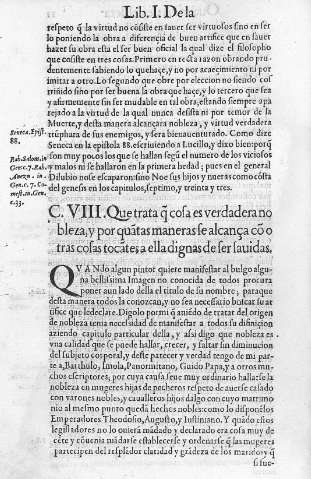 Lib. I. De la
respeto q̃ la virtud no cõsiste en sauer ser virtuosos sino en ser
lo poniendo la obra a diferencia de buen artifice que en sauer
hazer su obra esta el ser buen oficial la qual dize el filosopho
que cõsiste en tres cosas. Primero en recta razon obrando pru-
dentemente sabiendo lo que haçe, y no por acaecimiento ni por
imitar a otro. Lo segundo que obre por eleccion no siendo cos
triñido sino por ser buena la obra que haçe, y lo tercero que sea
y afirmemente sin ser mudable en tal obra, estando siempre apa
rejado a la virtud de la qual nunca desista ni por temor de la
Muerte, y desta manera alcançara nobleza, y virtud verdadera
triũphara de sus enemigos, y sera bienauenturado. Como dize
Seneca en la epistola 88. escriuiendo a Lucillo, y dixo bien porq̃
son muy pocos los que se hallan segũ el numero de los viciosos
y malos ni se hallaron en la primera hedad; pues en el general
Dilubio no se escaparon sino Noe sus hijos y nueras como cõsta
del genesis en los capitulos, septimo, y treinta y tres.
Seneca. Epist.
88.
Gen. c. 7.
c. 33.
C. VIII. Que trata q̃ cosa es verdadera no
bleza, y por quãtas maneras se alcança cõ o
tras cosas tocãtes a ella dignas de ser sauidas.
QVANdo algun pintor quiere manifestar al bulgo algu-
na bellissima Imagen no conocida de todos procura
poner aun lado della el titulo de su nombre, paraque
desta manera todos la conozcan, y no sea necessario buscar su ar
tifice que lo declare. Digolo porm̃ q̃ auiẽdo de tratar del origen
de nobleza tenia necesidad de manifestar a todos su difinicion
aziendo capitulo particular della, y asi digo que nobleza es v-
na calidad que se puede hallar, crecer, y faltar sin diminucion
del subjeto corporal, y deste parecer y verdad tengo de mi par-
te a, Barthulo, Imola, Panormitano, Guido Papa, y a otros mu-
chos escriptores, por cuya causa fue muy ordinario hallarse la
nobleza en mugeres hijas de pecheros respeto de auerse casado
con varones nobles, y caualleros hijos dalgo con cuyo matrimo
nio al mesmo punto quedã hechos nobles: como lo dispusiẽros
Emperadores Theodosio, Augusto, y Iustiniano. Y quãdo estos
legisladores no lo ouiera mãdado y declarado era cosa muy de
cẽte y cõuenia mãdarse establecerse y ordenarse q̃ las mugeres
participen del resplãdor claridad y grãdeza de los maridos y q̃
si fue-